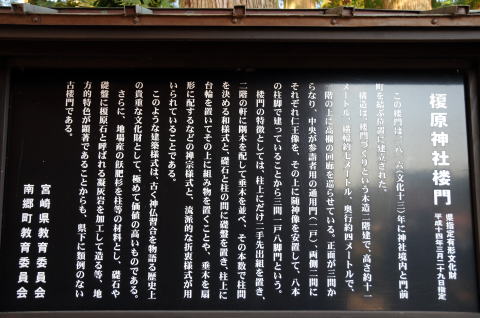 榎原神社楼門
県指定有形文化財
平成十四年三月二十九日指定
この楼門は一八一六(文化十三)年に神社境内と門前
町を結ぶ位置に建立された。
構造は、楼門づくりという木造二階建で、高さ約十一
メートル、横幅約七メートル、奥行約四メートルで、
階の上に高欄の回廊を巡らせている。正面が三間か
らなり、中央が参詣者用の通用門(一戸)、両側二間に
それぞれ仁王像を、その上に随神像を安置して、八本
の柱脚で建っていることから三間一戸八脚門という。
楼門の特徴としては、柱上にだけ二手先出組を置き、
二階の軒に隅木を配して垂木を並べ、その本数で柱間
を決める和様式と、礎石と柱の間に礎盤を置き、柱上に
台輪を置いてその上に組み物を置くことや、垂木を扇
形に配するなどの禅宗様式と、流派的な折衷様式が用
いられていることである。
このような建築様式は、古く神仏習合を物語る歴史上
の貴重な文化財として、極めて価値の高いものである。
さらに、地場産の飫肥杉を柱等の材料とし、礎石や
礎盤に榎原石と呼ばれる凝灰岩を加工して造る等、地
方的特色が顕著であることからも、県下に類例のない
古楼門である。
宮崎県教育委員会
南郷町教育委員会